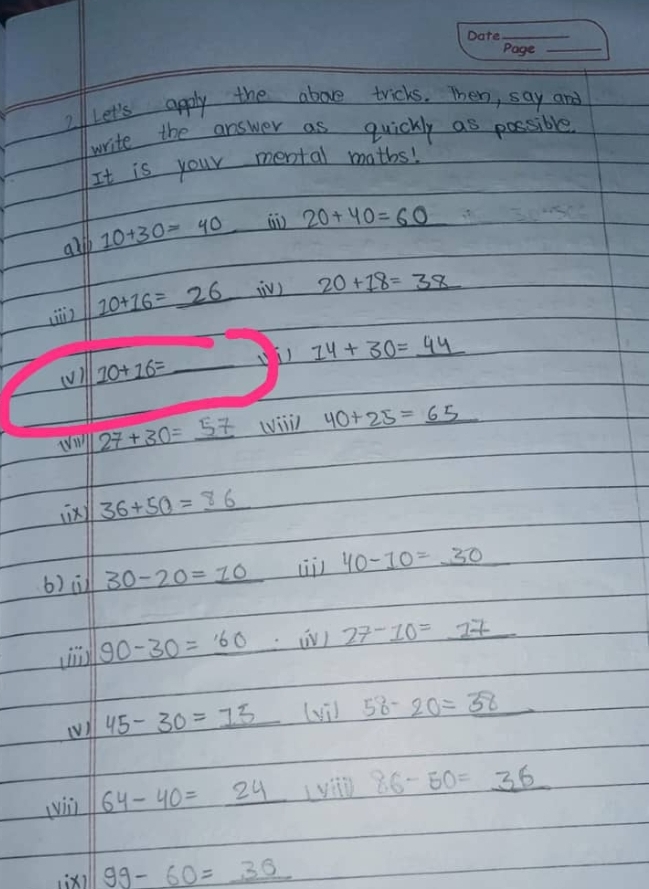 Date
Page
2. Let's apply the above tricks. Then, say and
write the answer as quickly as possible.
It is your mental maths!
a) i) 10+30= 40 ii) 20+40=60
iii) 10+16= 26 iv) 20+18= 38
v) 10+16= vi) 14+30= 44
vii) 27+30= 57 viii) 40+25= 65
ix) 36+50= 86
b) i) 30-20= 10 ii) 40-10= 30
iii) 90-30= 60 iv) 27-10= 17
v) 45-30= 15 vi) 58-20= 38
vii) 64-40= 24 viii) 86-50= 36
ix) 99-60=